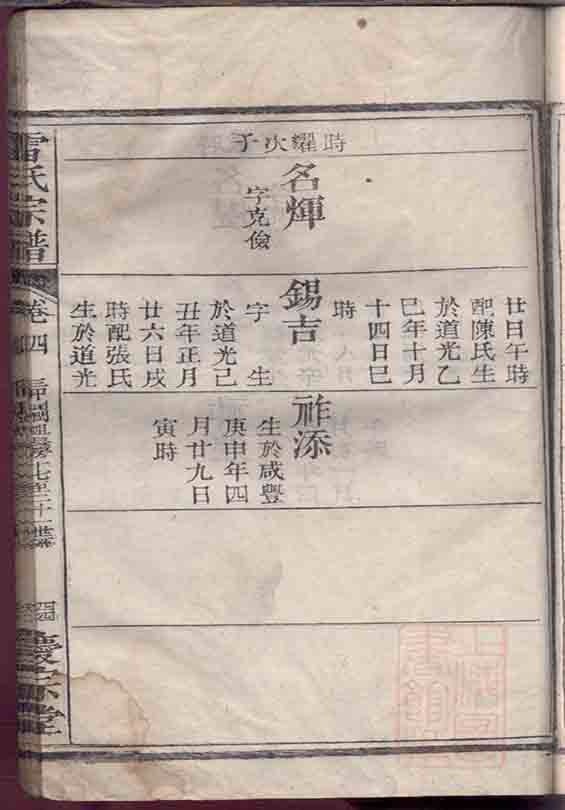 時耀次子
名煇
字克儉
廿日午時
配陳氏生
於道光乙
巳年十月
十四日巳
時
錫吉
字　生
於道光己
丑年正月
廿六日戌
時配張氏
生於道光
祚添
生於咸豐
庚申年四
月廿九日
寅時
雷氏宗譜
卷四
慶宗堂